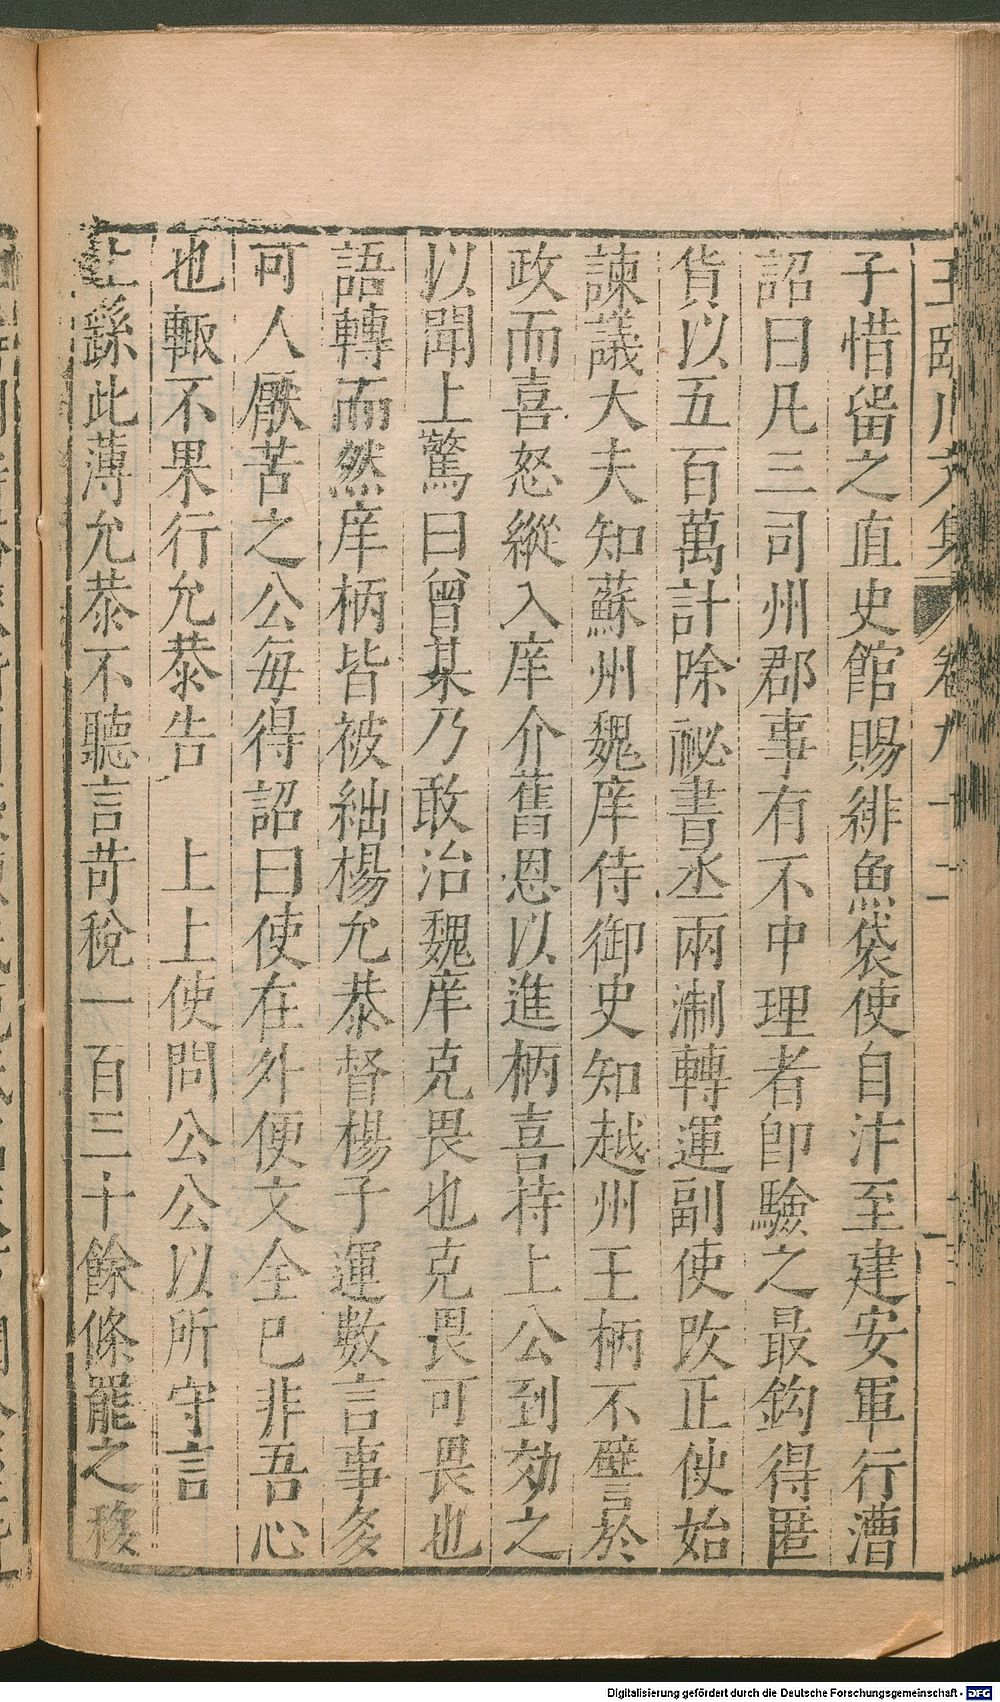 王臨川文集 卷九十二
子惜留之直史館賜緋魚袋使自汴至建安軍行漕
詔曰凡三司州郡事有不中理者即驗之最鈎得匿
貨以五百萬計除祕書丞兩淛轉運副使改正使始
諫議大夫知蘇州魏庠侍御史知越州王柄不壁言於
政而喜怒縱入庠介舊恩以進柄喜持上公到効之
以聞上驚曰曾某乃敢治魏庠克畏也克畏可畏也
語轉而然庠柄皆被絀楊允恭督楊子運數言事多
可人厭苦之公每得詔曰使在外便文全已非吾心
也輙不果行允恭告 上上使問公公以所守言
上繇此薄允恭不聽言苛稅一百三十餘條罷之
Digitalisierung gefördert durch die Deutsche Forschungsgemeinschaft - DFG